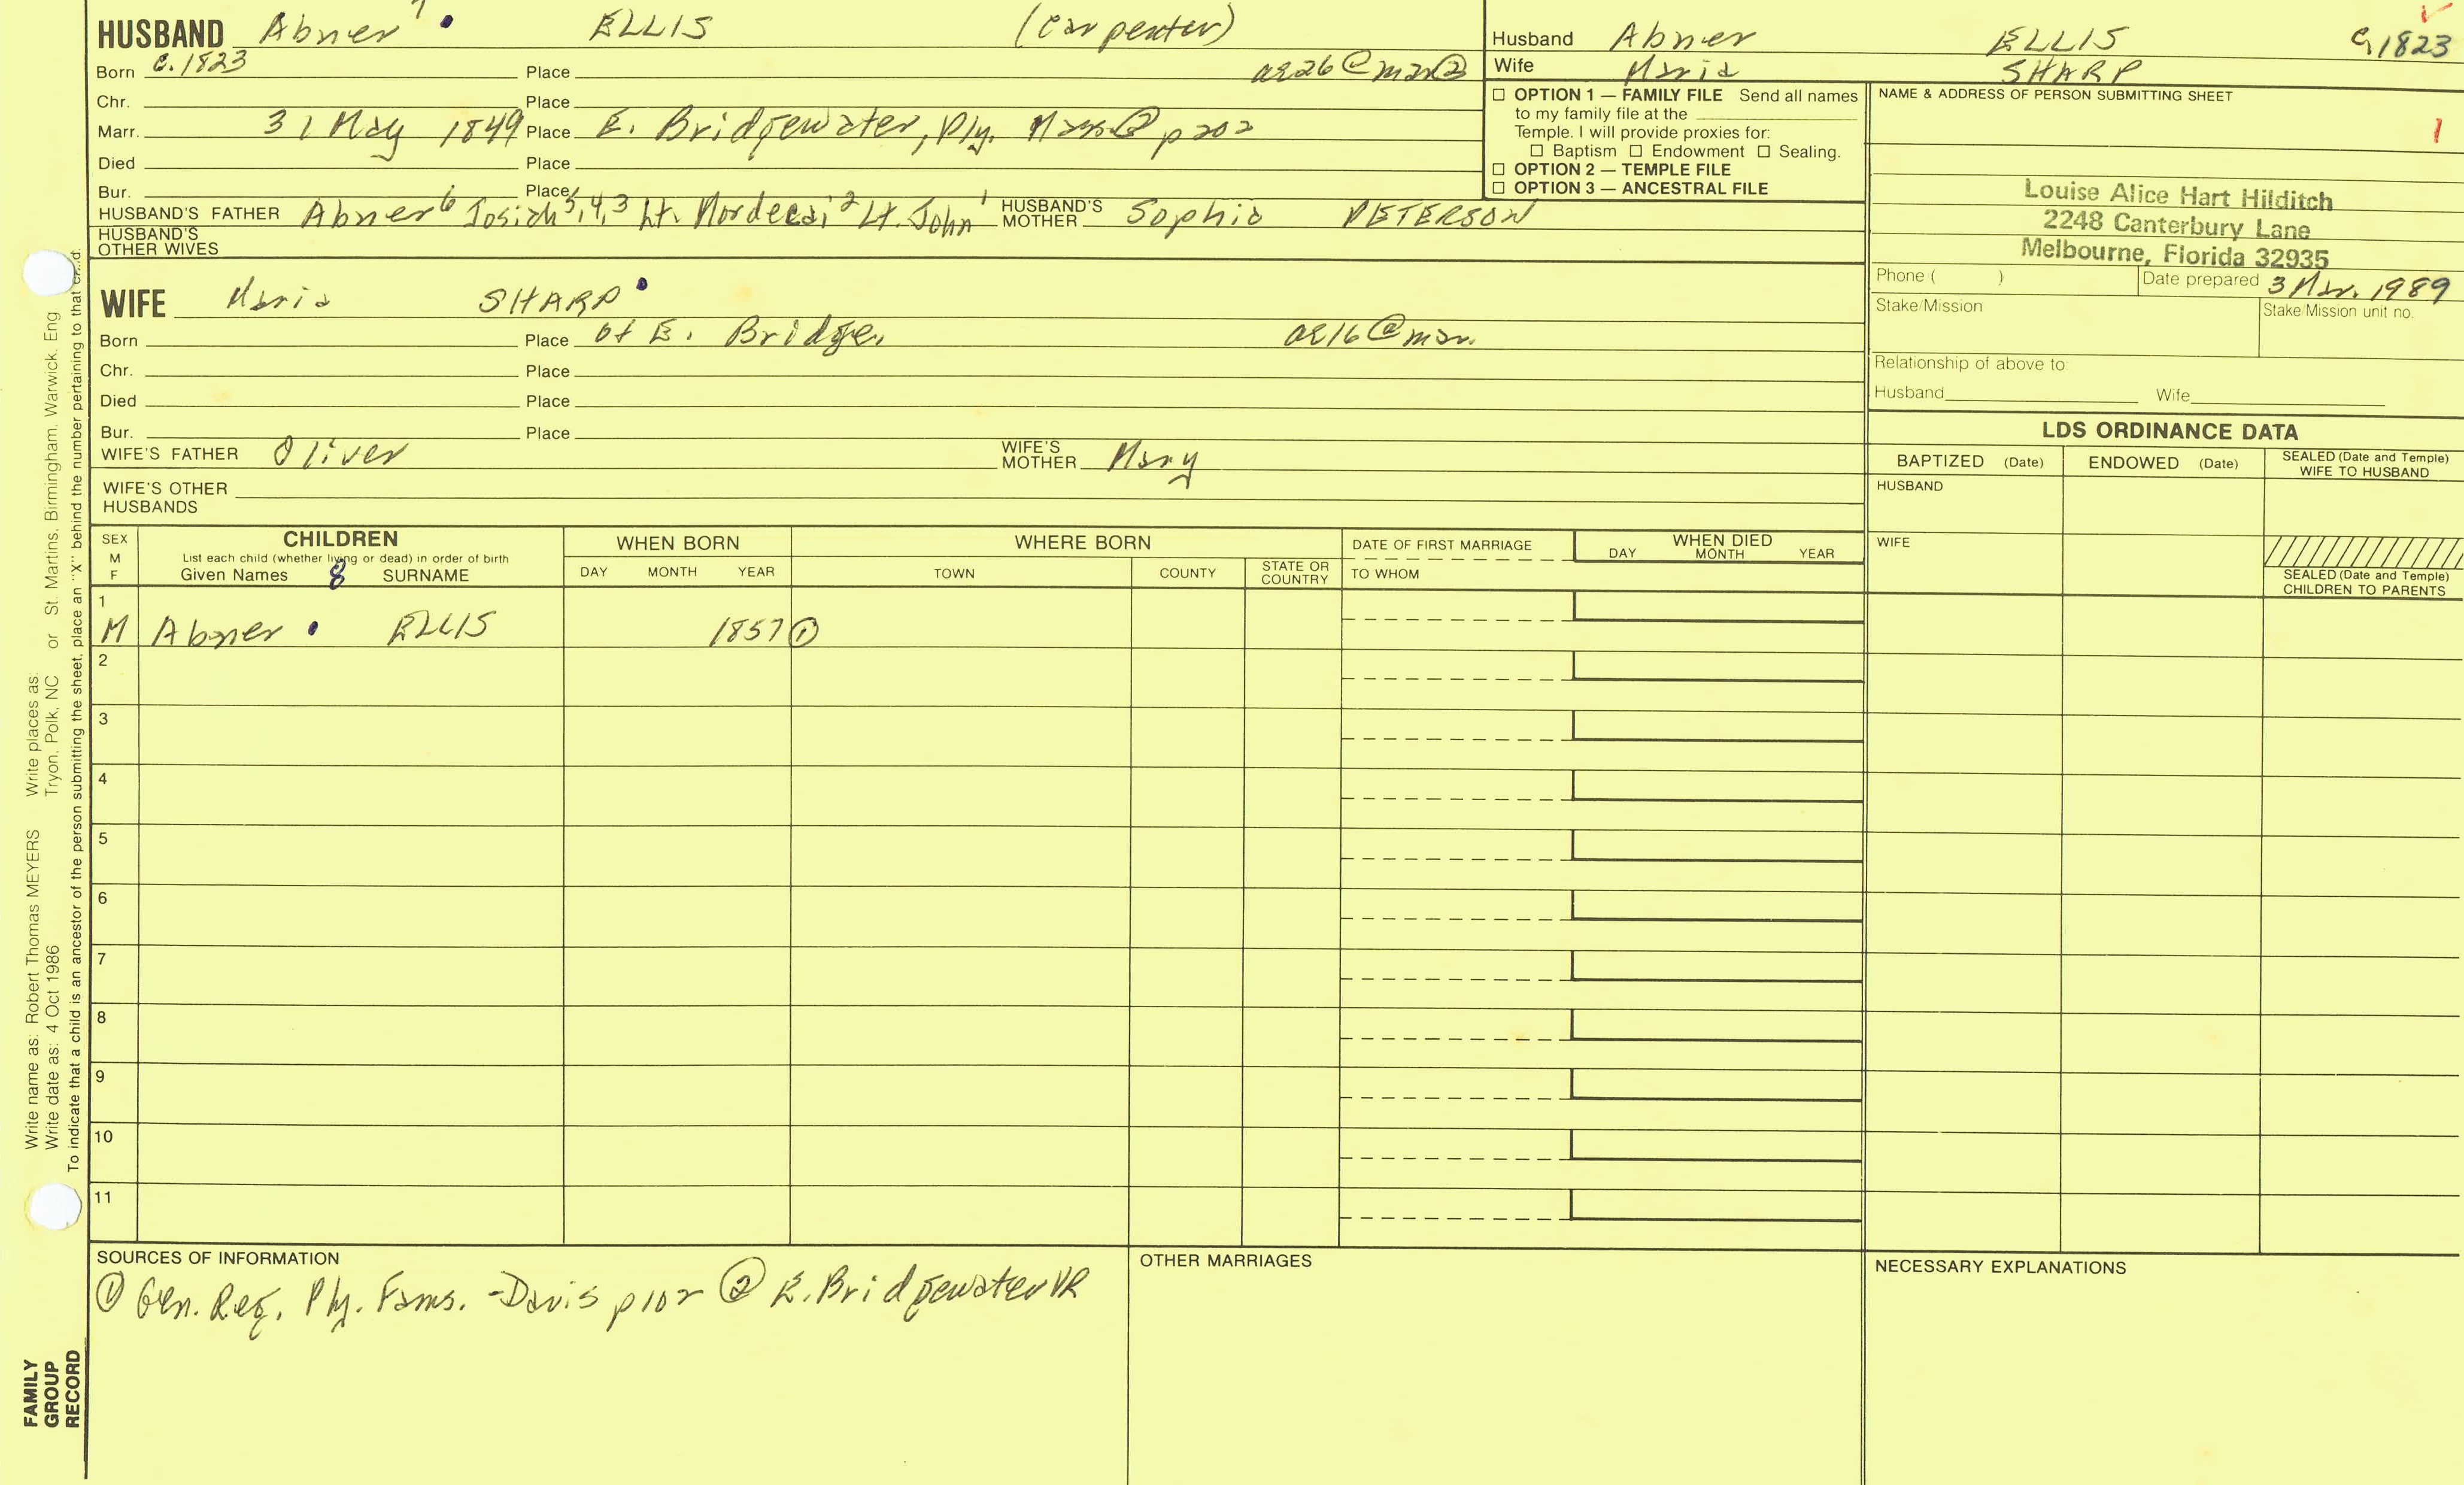 HUSBAND Abner 7 ELLIS (carpenter)
Born c. 1823 Place ae 26 @ mar ②
Chr. Place
Marr. 31 May 1849 Place E. Bridgewater, Ply. Mass ② p 202
Died Place
Bur. Place
HUSBAND'S FATHER Abner 6 Josiah 5,4,3 Lt. Mordecai 2 Lt. John 1 HUSBAND'S MOTHER Sophia PETERSON
HUSBAND'S OTHER WIVES
WIFE Maria SHARP
Born Place of E. Bridge. ae 16 @ mar.
Chr. Place
Died Place
Bur. Place
WIFE'S FATHER Oliver WIFE'S MOTHER Mary
WIFE'S OTHER HUSBANDS
Husband Abner ELLIS c. 1823
Wife Maria SHARP
□ OPTION 1 — FAMILY FILE Send all names
to my family file at the
Temple. I will provide proxies for:
□ Baptism □ Endowment □ Sealing.
□ OPTION 2 — TEMPLE FILE
□ OPTION 3 — ANCESTRAL FILE
NAME & ADDRESS OF PERSON SUBMITTING SHEET
1
Louise Alice Hart Hilditch
2248 Canterbury Lane
Melbourne, Florida 32935
Phone ( ) Date prepared 3 Mar. 1989
Stake/Mission Stake/Mission unit no.
Relationship of above to:
Husband Wife
LDS ORDINANCE DATA
BAPTIZED (Date) ENDOWED (Date) SEALED (Date and Temple) WIFE TO HUSBAND
HUSBAND
WIFE
SEALED (Date and Temple) CHILDREN TO PARENTS
SEX M F CHILDREN
List each child (whether living or dead) in order of birth
Given Names 8 SURNAME
WHEN BORN
DAY MONTH YEAR
WHERE BORN
TOWN COUNTY STATE OR COUNTRY
DATE OF FIRST MARRIAGE
TO WHOM
WHEN DIED
DAY MONTH YEAR
1
M Abner ELLIS 1857 ①
2
3
4
5
6
7
8
9
10
11
SOURCES OF INFORMATION
① Gen. Reg. Ply. Fams. - Davis p 102 ② E. Bridgewater VR
OTHER MARRIAGES
NECESSARY EXPLANATIONS
Write name as: Robert Thomas MEYERS Write places as:
Write date as: 4 Oct 1986 Tryon, Polk, NC or St. Martins, Birmingham, Warwick, Eng
To indicate that a child is an ancestor of the person submitting the sheet, place an "X" behind the number pertaining to that
FAMILY
GROUP
RECORD